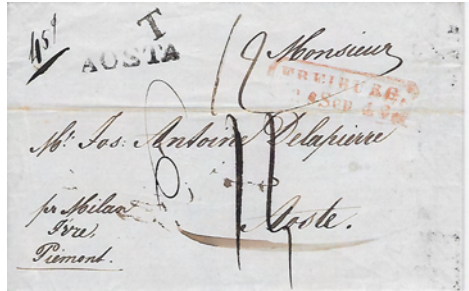 T
AOSTA
12
Monsieur
FREIBURG.
Mr. Jos: Antoine Delapierre
Aoste.
pr Milan
Ivre,
Piémont.